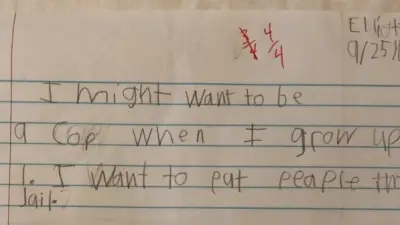 4/4
9/25/
I might want to be
a Cop when I grow up
1. I want to put peaple
Jail.